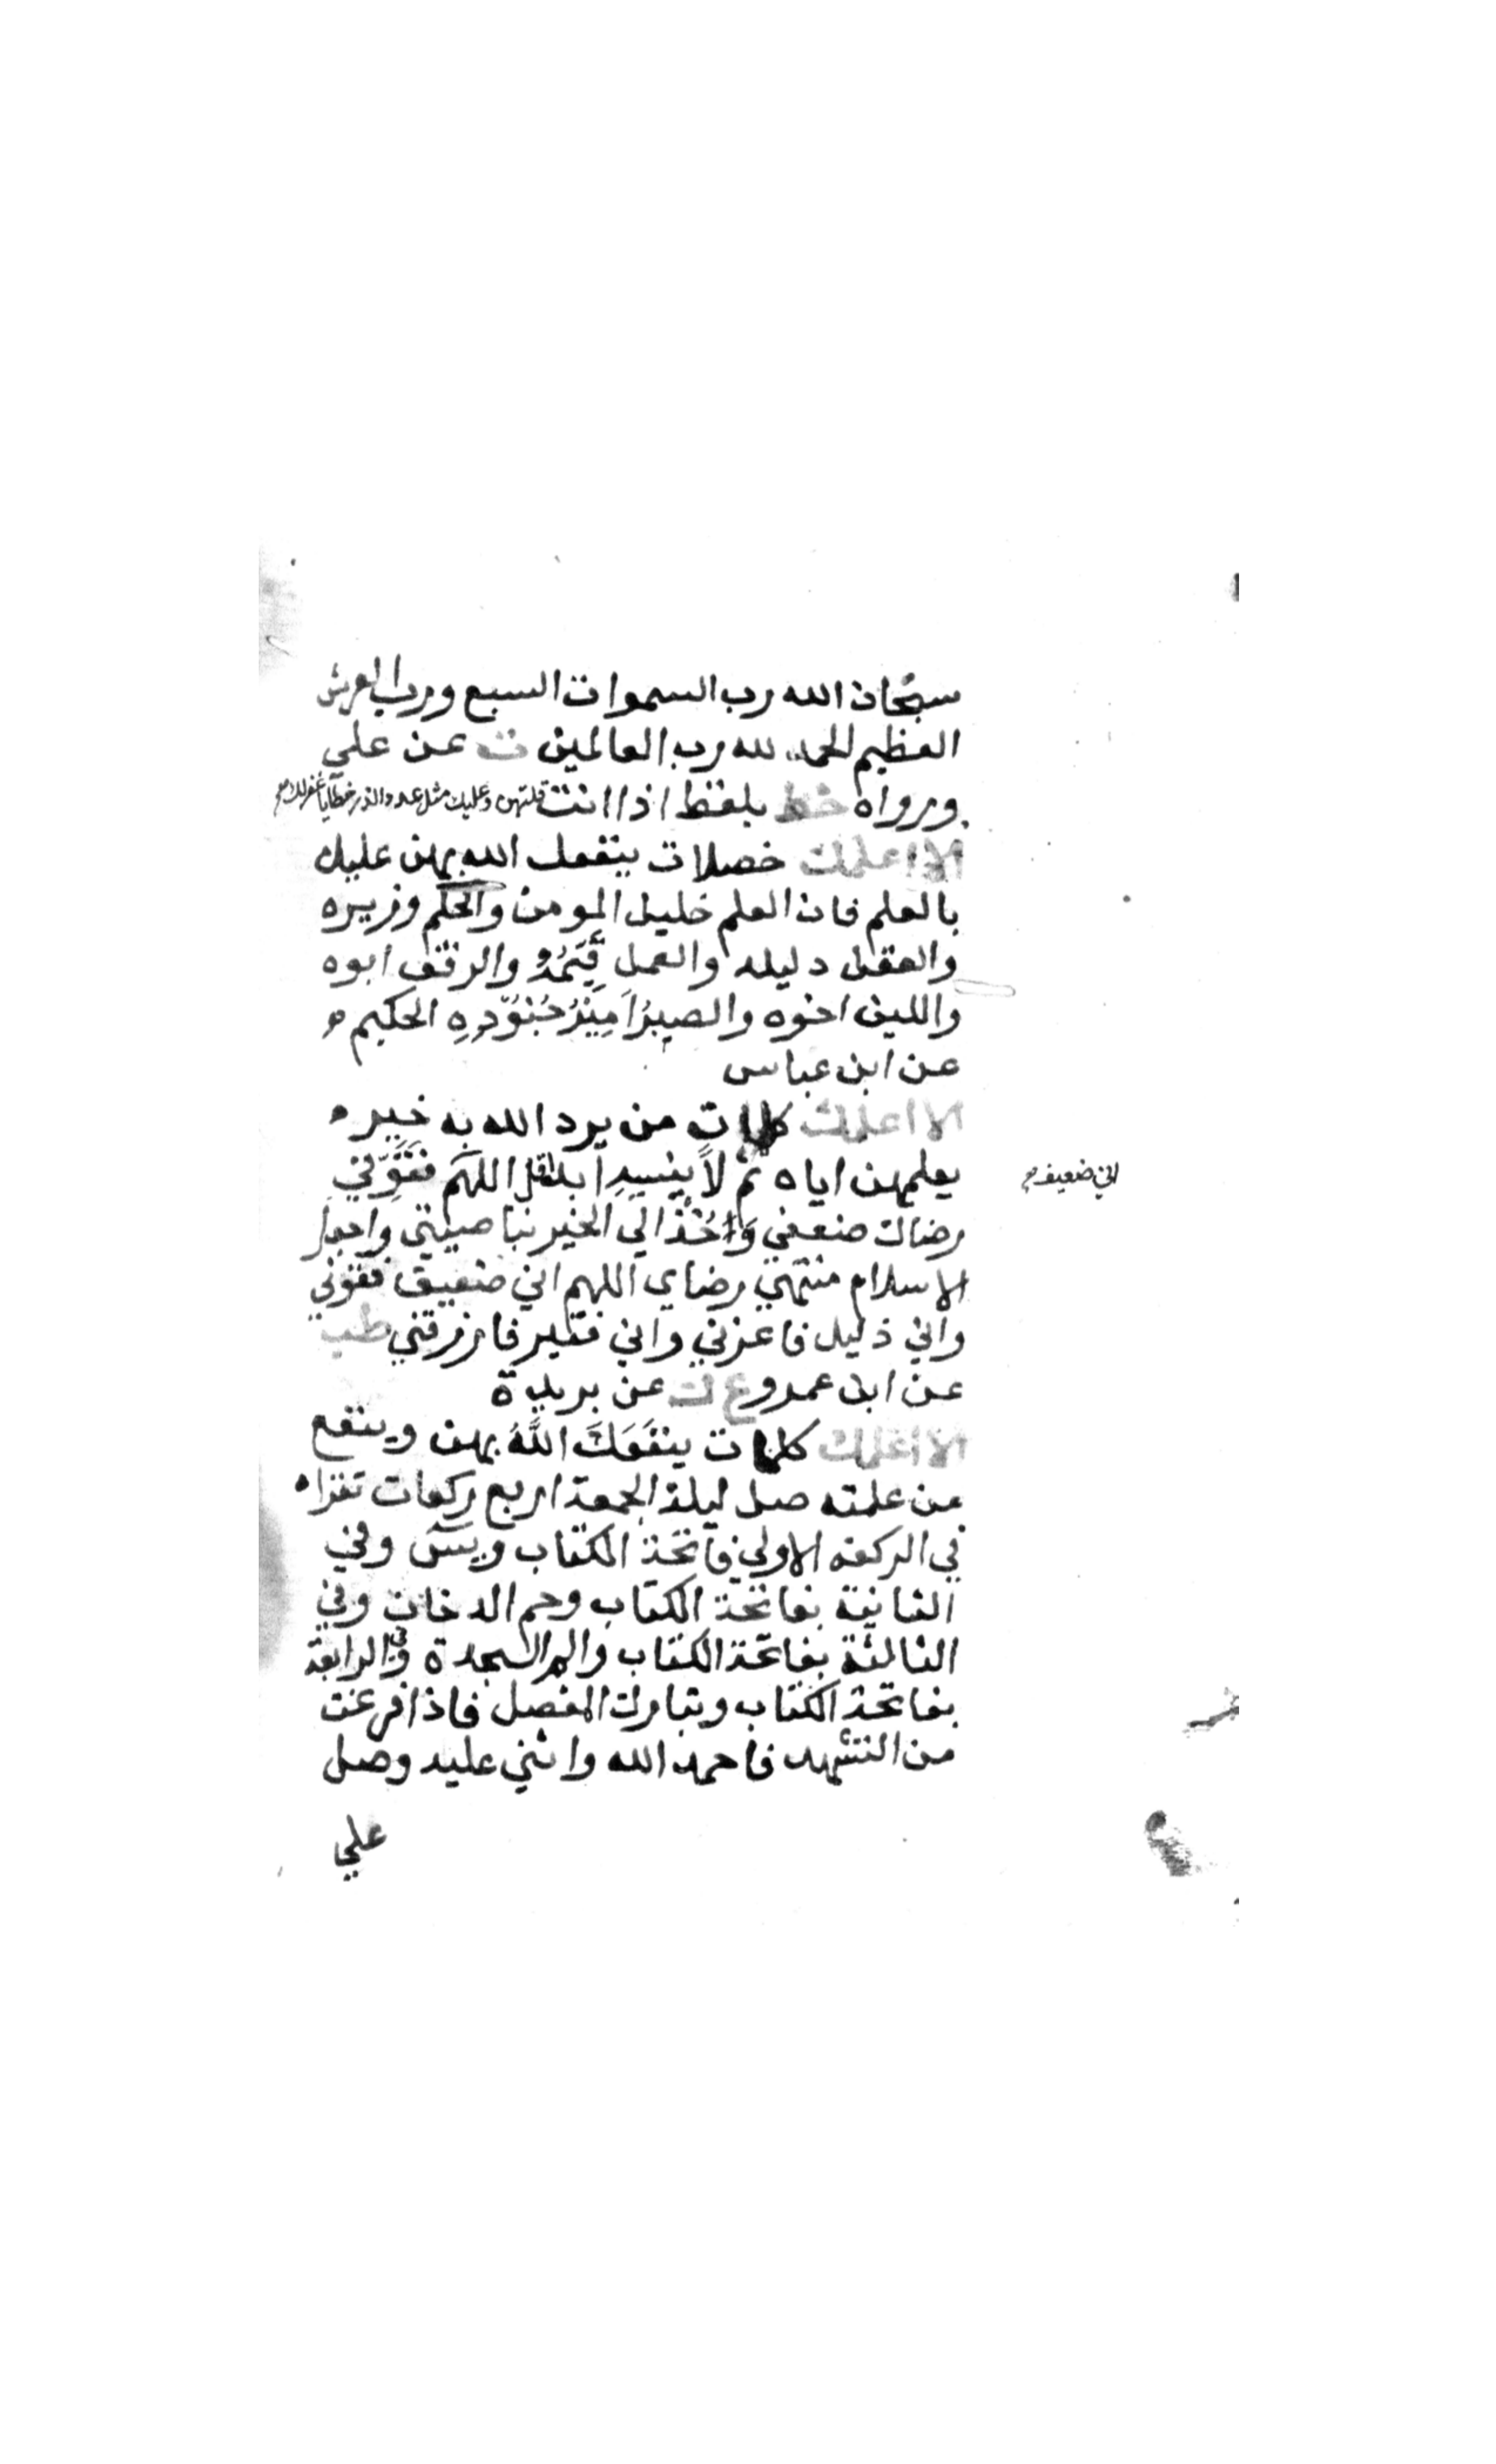 سبحان الله رب السموات السبع ورب العرش
العظيم الحمد لله رب العالمين ت عن علي
ورواه خط بلفظ اذا انت قلتهن وعليك مثل عدد الذر خطايا غفر لك صح
الا اعلمك خصلات ينفعك الله بهن عليك
بالعلم فان العلم خليل المومن والحلم وزيره
والعقل دليله والعمل قيمه والرفق ابوه
واللين اخوه والصبر امير جنوده الحكيم
عن ابن عباس
الا اعلمك كلمات من يرد الله به خيره
يعلمهن اياه ثم لا ينسيه ابدا قل اللهم فقوني
اني ضعيف صح
رضاك ضعفي وخذ الي الخير بناصيتي واجعل
الاسلام منتهي رضاي اللهم اني ضعيف فقوني
واني ذليل فاعزني واني فقير فارزقني طب
عن ابن عمرو ع ك عن بريدة
الا اعلمك كلمات ينفعك الله بهن وينفع
من علمته صل ليلة الجمعة اربع ركعات تقراه
في الركعه الاولي فاتحة الكتاب ويس وفي
الثانية بفاتحة الكتاب وحم الدخان وفي
الثالثة بفاتحة الكتاب والم السجدة وفي الرابعة
بفاتحة الكتاب وتبارك المفصل فاذا فرغت
من التشهد فاحمد الله واثني عليه وصل
علي